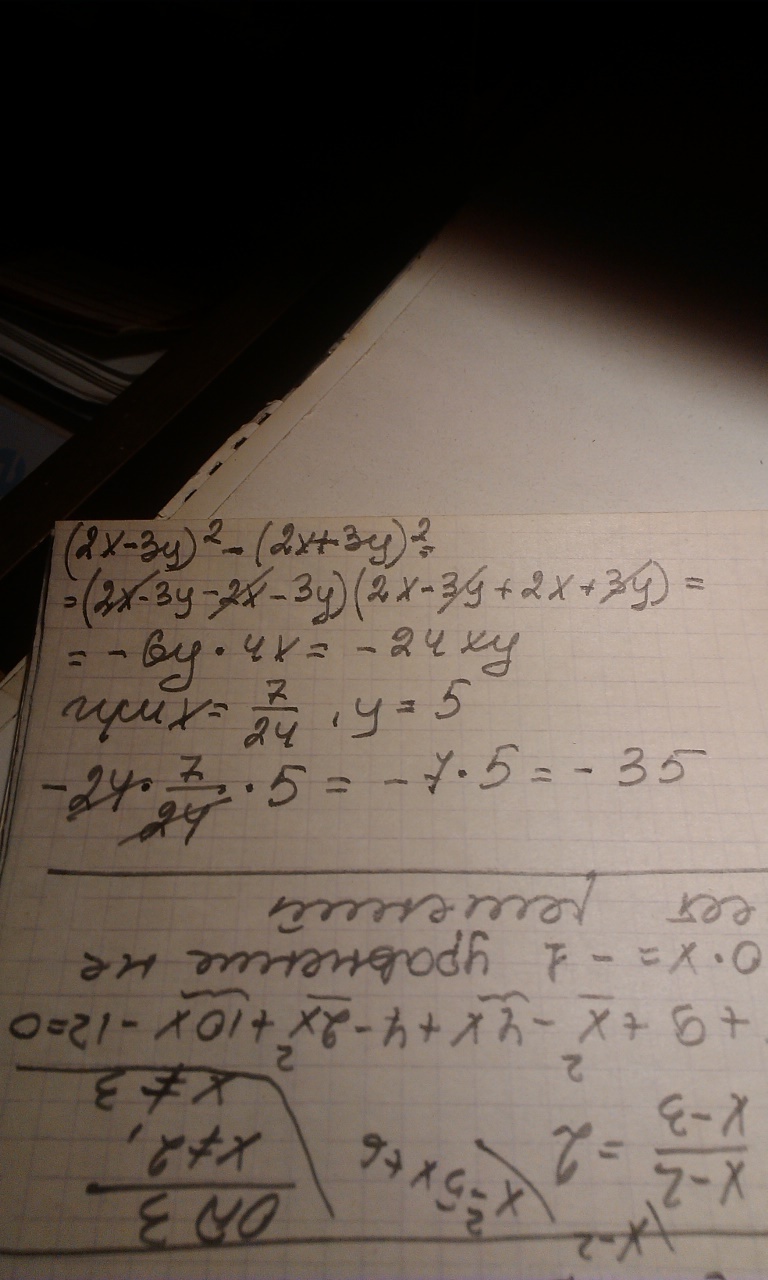 (2x-3y)² - (2x+3y)² =
= (2x-3y-2x-3y)(2x-3y+2x+3y) =
= -6y·4x = -24xy
при x = 7/24, y = 5
-24·7/24·5 = -7·5 = -35
x-2
x-2/x-3 = 2
x²-5x+6
ОДЗ
x≠2,
x≠3
+9+x²-4x+4-2x²+10x-12=0
0·x = -1 уравнение не
ет решений